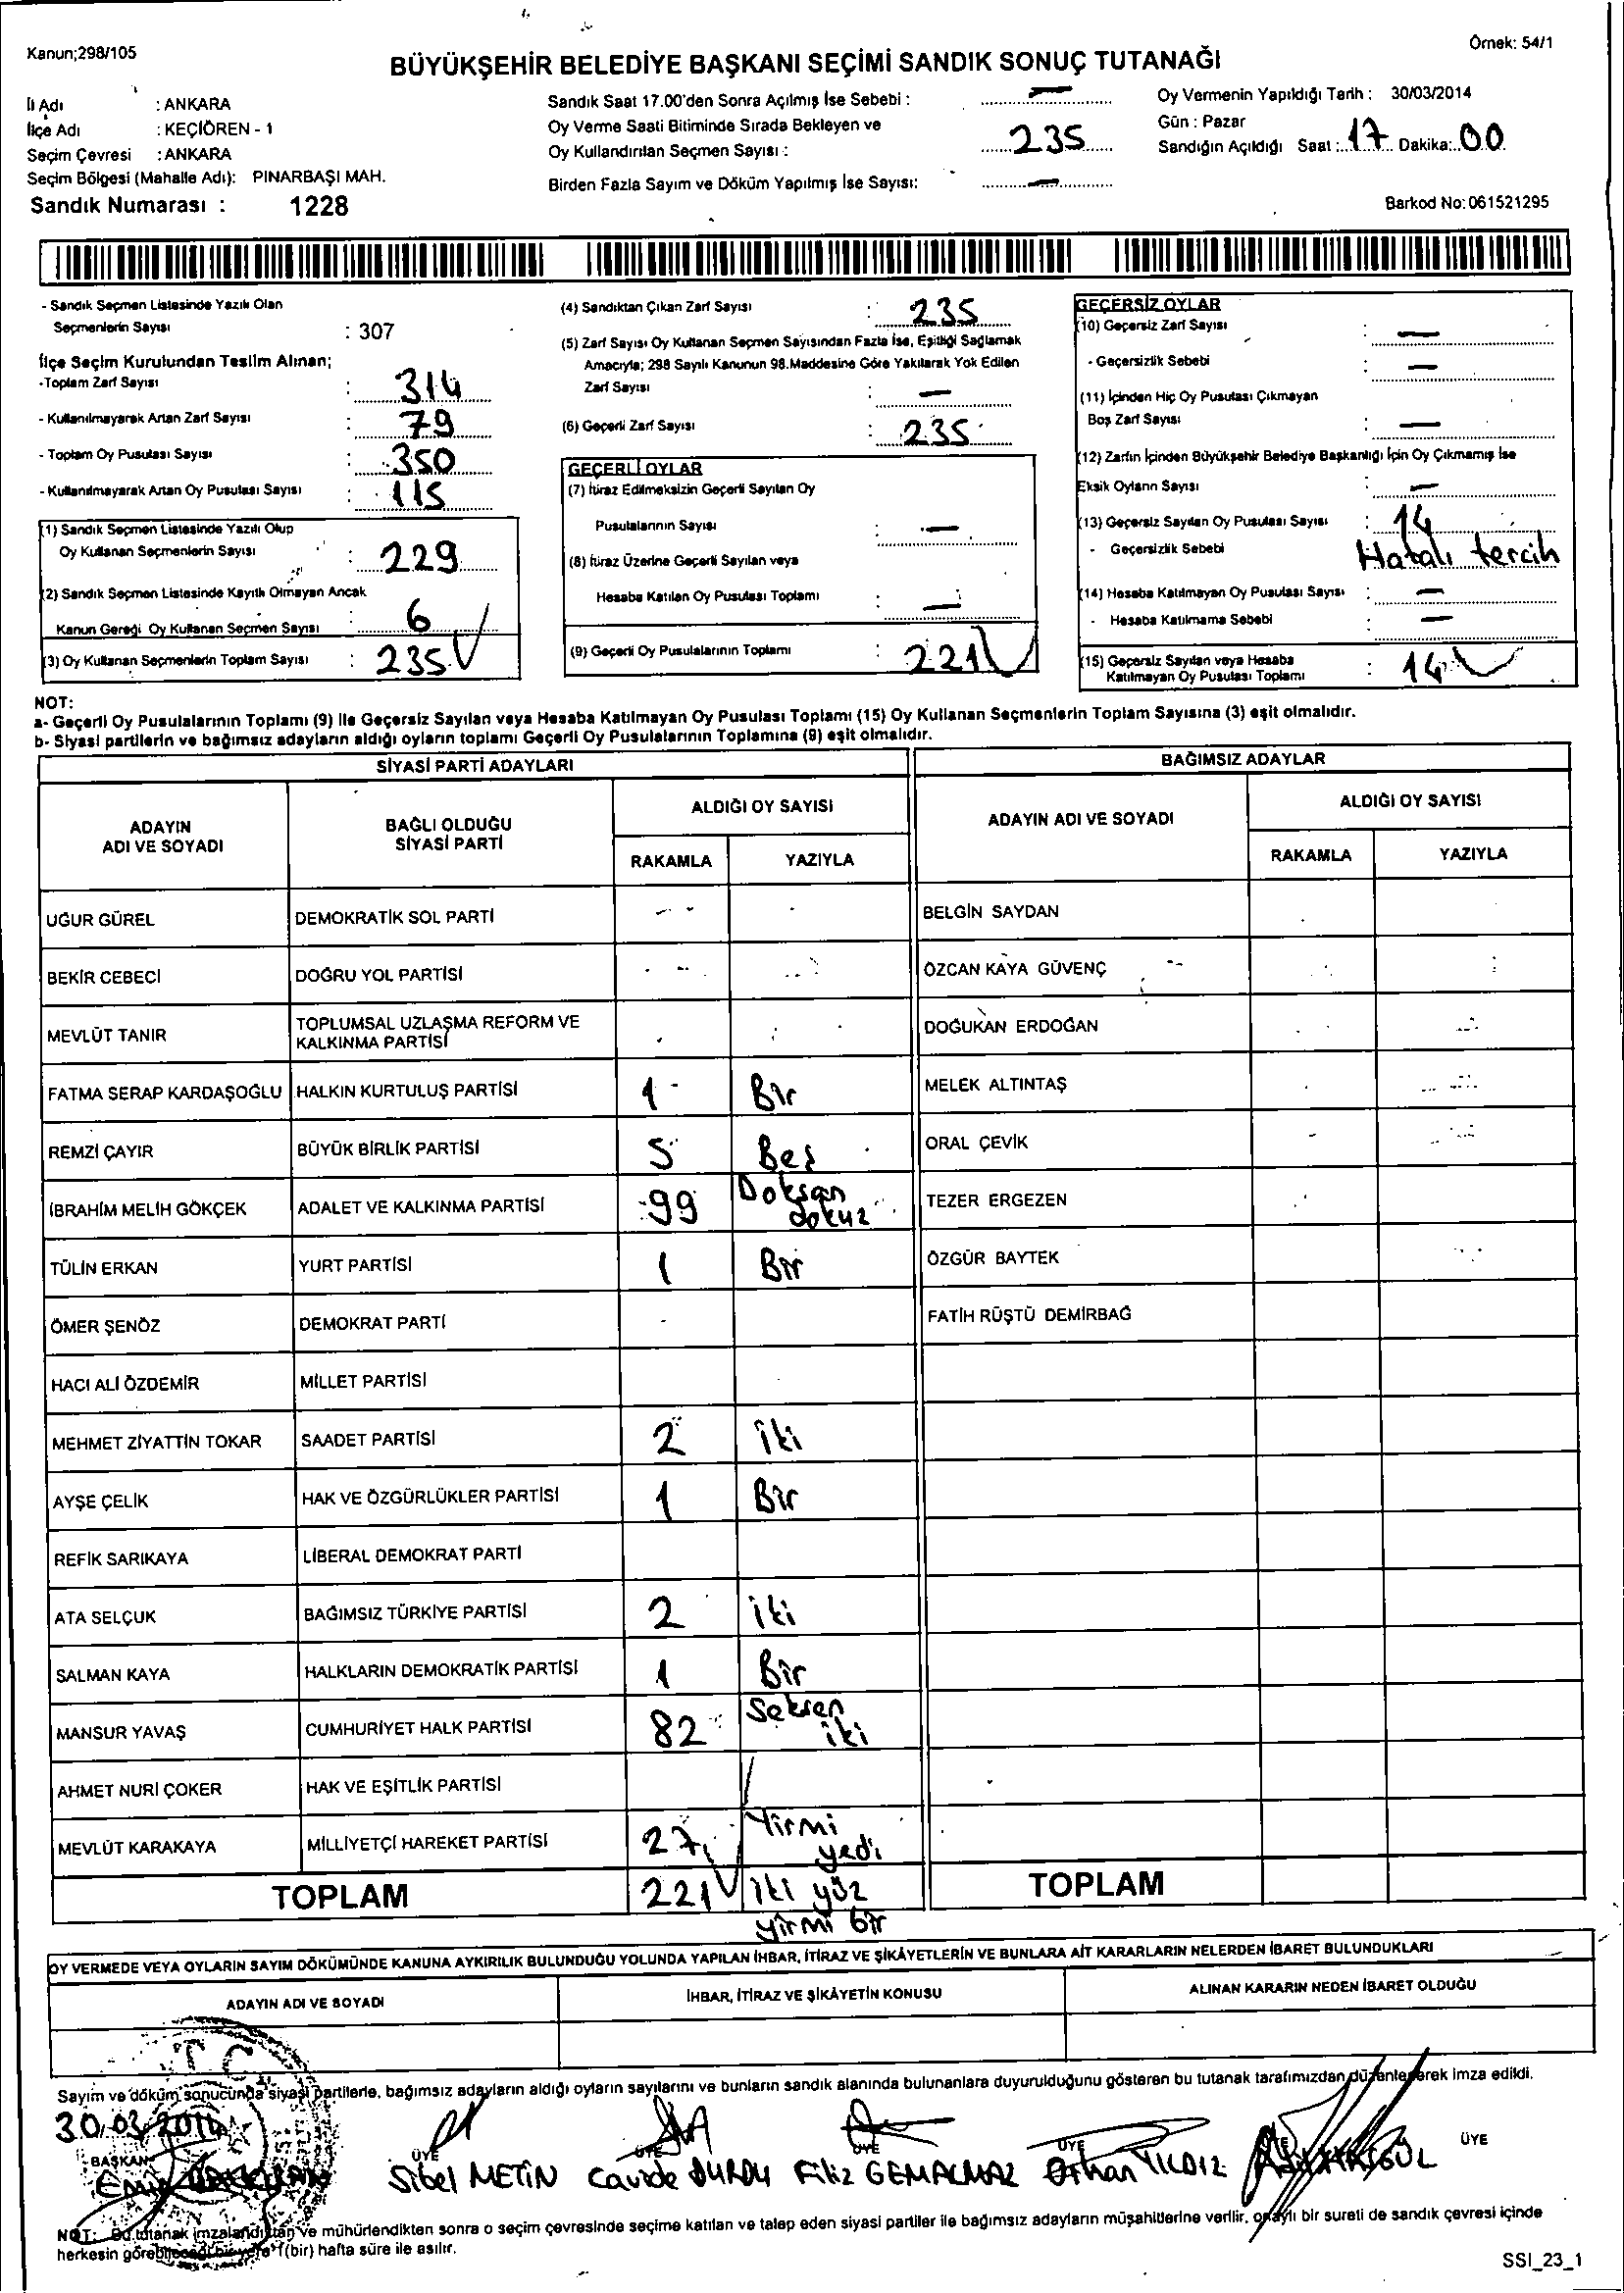 Kanun;298/105
Örnek: 54/1
BÜYÜKŞEHİR BELEDİYE BAŞKANI SEÇİMİ SANDIK SONUÇ TUTANAĞI
İl Adı : ANKARA
İlçe Adı : KEÇİÖREN - 1
Seçim Çevresi : ANKARA
Seçim Bölgesi (Mahalle Adı): PINARBAŞI MAH.
Sandık Numarası : 1228
Sandık Saat 17.00'den Sonra Açılmış İse Sebebi : —
Oy Verme Saati Bitiminde Sırada Bekleyen ve
Oy Kullandırılan Seçmen Sayısı : 235
Birden Fazla Sayım ve Döküm Yapılmış İse Sayısı: —
Oy Vermenin Yapıldığı Tarih : 30/03/2014
Gün : Pazar
Sandığın Açıldığı Saat : 17 Dakika: 00
Barkod No: 061521295
- Sandık Seçmen Listesinde Yazılı Olan
Seçmenlerin Sayısı : 307
İlçe Seçim Kurulundan Teslim Alınan;
-Toplam Zarf Sayısı : 314
- Kullanılmayarak Artan Zarf Sayısı : 79
- Toplam Oy Pusulası Sayısı : 350
- Kullanılmayarak Artan Oy Pusulası Sayısı : 115
(1) Sandık Seçmen Listesinde Yazılı Olup
Oy Kullanan Seçmenlerin Sayısı : 229
(2) Sandık Seçmen Listesinde Kayıtlı Olmayan Ancak
Kanun Gereği Oy Kullanan Seçmen Sayısı : 6
(3) Oy Kullanan Seçmenlerin Toplam Sayısı : 235
(4) Sandıktan Çıkan Zarf Sayısı : 235
(5) Zarf Sayısı Oy Kullanan Seçmen Sayısından Fazla İse, Eşitliği Sağlamak
Amacıyla; 298 Sayılı Kanunun 98.Maddesine Göre Yakılarak Yok Edilen
Zarf Sayısı : —
(6) Geçerli Zarf Sayısı : 235
GEÇERLİ OYLAR
(7) İtiraz Edilmeksizin Geçerli Sayılan Oy
Pusulalarının Sayısı : —
(8) İtiraz Üzerine Geçerli Sayılan veya
Hesaba Katılan Oy Pusulası Toplamı : —
(9) Geçerli Oy Pusulalarının Toplamı : 221
GEÇERSİZ OYLAR
(10) Geçersiz Zarf Sayısı : —
- Geçersizlik Sebebi : —
(11) İçinden Hiç Oy Pusulası Çıkmayan
Boş Zarf Sayısı : —
(12) Zarfın İçinden Büyükşehir Belediye Başkanlığı İçin Oy Çıkmamış İse
Eksik Oyların Sayısı : —
(13) Geçersiz Sayılan Oy Pusulası Sayısı : 14
- Geçersizlik Sebebi Hatalı tercih
(14) Hesaba Katılmayan Oy Pusulası Sayısı : —
- Hesaba Katılmama Sebebi : —
(15) Geçersiz Sayılan veya Hesaba
Katılmayan Oy Pusulası Toplamı : 14
NOT:
a- Geçerli Oy Pusulalarının Toplamı (9) ile Geçersiz Sayılan veya Hesaba Katılmayan Oy Pusulası Toplamı (15) Oy Kullanan Seçmenlerin Toplam Sayısına (3) eşit olmalıdır.
b- Siyasi partilerin ve bağımsız adayların aldığı oyların toplamı Geçerli Oy Pusulalarının Toplamına (9) eşit olmalıdır.
SİYASİ PARTİ ADAYLARI
ADAYIN ADI VE SOYADI
BAĞLI OLDUĞU SİYASİ PARTİ
ALDIĞI OY SAYISI
RAKAMLA YAZIYLA
UĞUR GÜREL DEMOKRATİK SOL PARTİ
BEKİR CEBECİ DOĞRU YOL PARTİSİ
MEVLÜT TANIR TOPLUMSAL UZLAŞMA REFORM VE KALKINMA PARTİSİ
FATMA SERAP KARDAŞOĞLU HALKIN KURTULUŞ PARTİSİ 1 Bir
REMZİ ÇAYIR BÜYÜK BİRLİK PARTİSİ 5 Beş
İBRAHİM MELİH GÖKÇEK ADALET VE KALKINMA PARTİSİ 99 Doksan dokuz
TÜLİN ERKAN YURT PARTİSİ 1 Bir
ÖMER ŞENÖZ DEMOKRAT PARTİ
HACI ALİ ÖZDEMİR MİLLET PARTİSİ
MEHMET ZİYATTİN TOKAR SAADET PARTİSİ 2 iki
AYŞE ÇELİK HAK VE ÖZGÜRLÜKLER PARTİSİ 1 Bir
REFİK SARIKAYA LİBERAL DEMOKRAT PARTİ
ATA SELÇUK BAĞIMSIZ TÜRKİYE PARTİSİ 2 iki
SALMAN KAYA HALKLARIN DEMOKRATİK PARTİSİ 1 Bir
MANSUR YAVAŞ CUMHURİYET HALK PARTİSİ 82 Seksen iki
AHMET NURİ ÇOKER HAK VE EŞİTLİK PARTİSİ
MEVLÜT KARAKAYA MİLLİYETÇİ HAREKET PARTİSİ 27 Yirmi yedi
TOPLAM 221 iki yüz yirmi bir
BAĞIMSIZ ADAYLAR
ADAYIN ADI VE SOYADI
ALDIĞI OY SAYISI
RAKAMLA YAZIYLA
BELGİN SAYDAN
ÖZCAN KAYA GÜVENÇ
DOĞUKAN ERDOĞAN
MELEK ALTINTAŞ
ORAL ÇEVİK
TEZER ERGEZEN
ÖZGÜR BAYTEK
FATİH RÜŞTÜ DEMİRBAĞ
TOPLAM
OY VERMEDE VEYA OYLARIN SAYIM DÖKÜMÜNDE KANUNA AYKIRILIK BULUNDUĞU YOLUNDA YAPILAN İHBAR, İTİRAZ VE ŞİKÂYETLERİN VE BUNLARA AİT KARARLARIN NELERDEN İBARET BULUNDUKLARI
ADAYIN ADI VE SOYADI
İHBAR, İTİRAZ VE ŞİKÂYETİN KONUSU
ALINAN KARARIN NEDEN İBARET OLDUĞU
T.C.
Sayım ve döküm sonucunda siyasi partilerle, bağımsız adayların aldığı oyların sayılarını ve bunların sandık alanında bulunanlara duyurulduğunu gösteren bu tutanak tarafımızdan düzenlenerek imza edildi.
30.03.2014
BAŞKAN ÜYE ÜYE ÜYE ÜYE ÜYE
Sibel METİN Cavide DURDU Filiz GEMALMAZ Orhan YILDIZ
NOT: Bu tutanak imzalandıktan ve mühürlendikten sonra o seçim çevresinde seçime katılan ve talep eden siyasi partiler ile bağımsız adayların müşahitlerine verilir, onaylı bir sureti de sandık çevresi içinde
herkesin görebileceği bir yere 1(bir) hafta süre ile asılır.
SSI_23_1